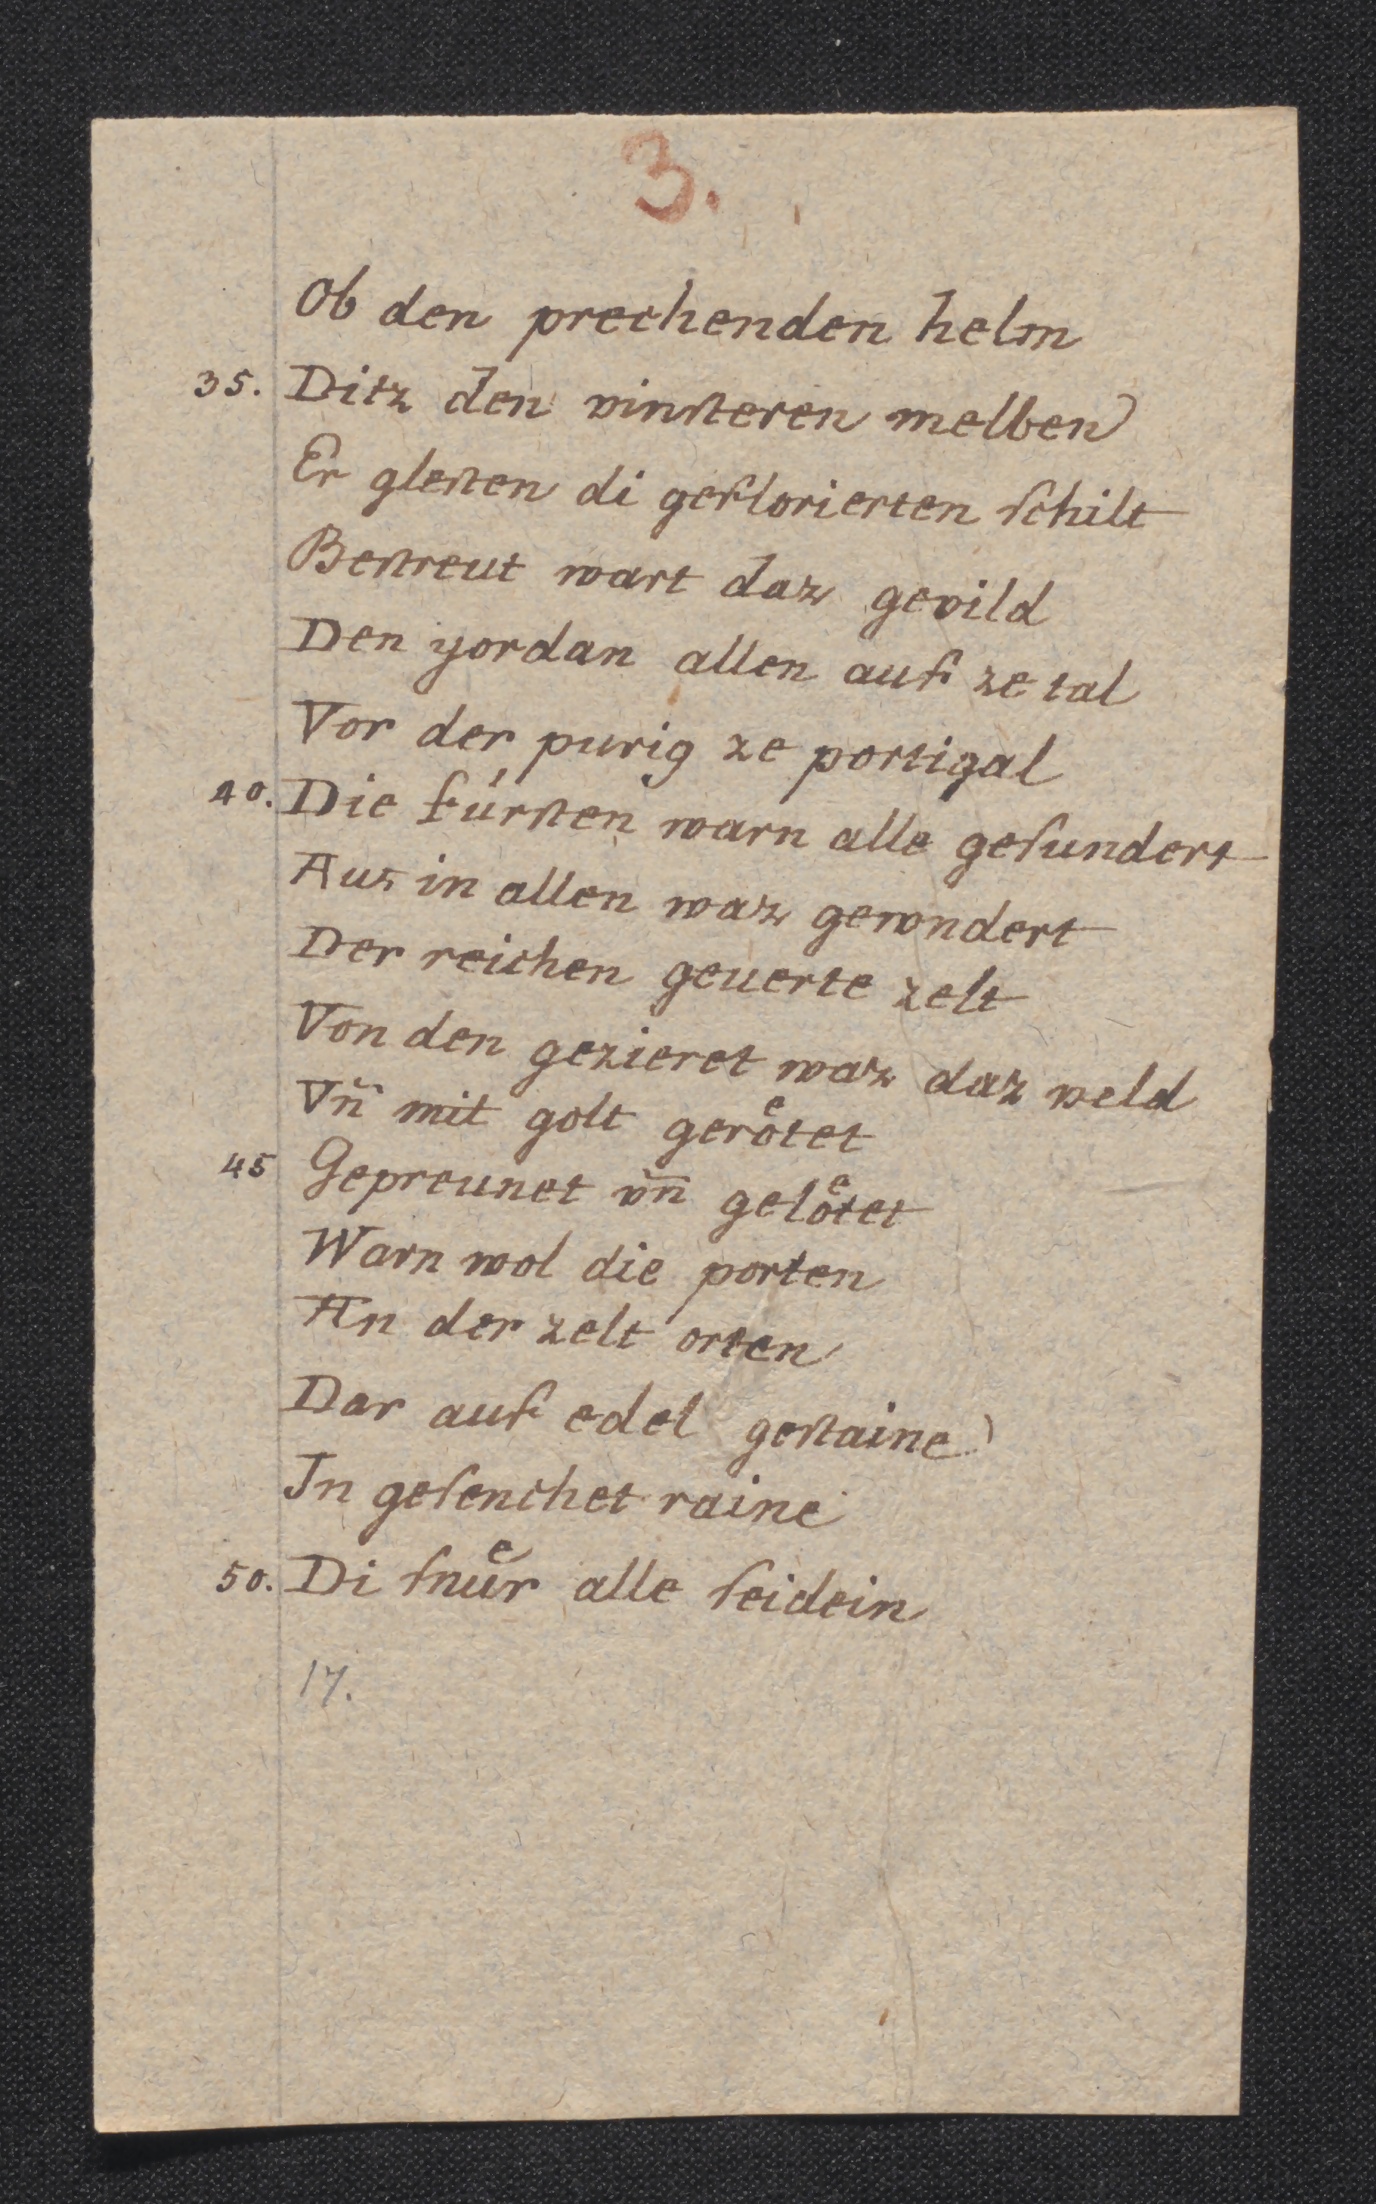 3.
Ob den prechenden helm
35. Ditz den vinſteren melben
Er gleſten di geflorierten ſchilt
Beſtreut wart daz gevild
Den yordan allen auf ze tal
Vor der purig ze portigal
40. Die fúrſten warn alle geſundert
Aus in allen waz gewndert
Der reichen geuerte zelt
Von den gezieret waz daz veld
Vn̄ mit golt geroͤtet
45 Gepreunet vn̄ geloͤtet
Warn wol die porten
An der zelt orten
Dar auf edel geſtaine
In geſenchet raine
50. Di ſnuͤr alle ſeidein
17.